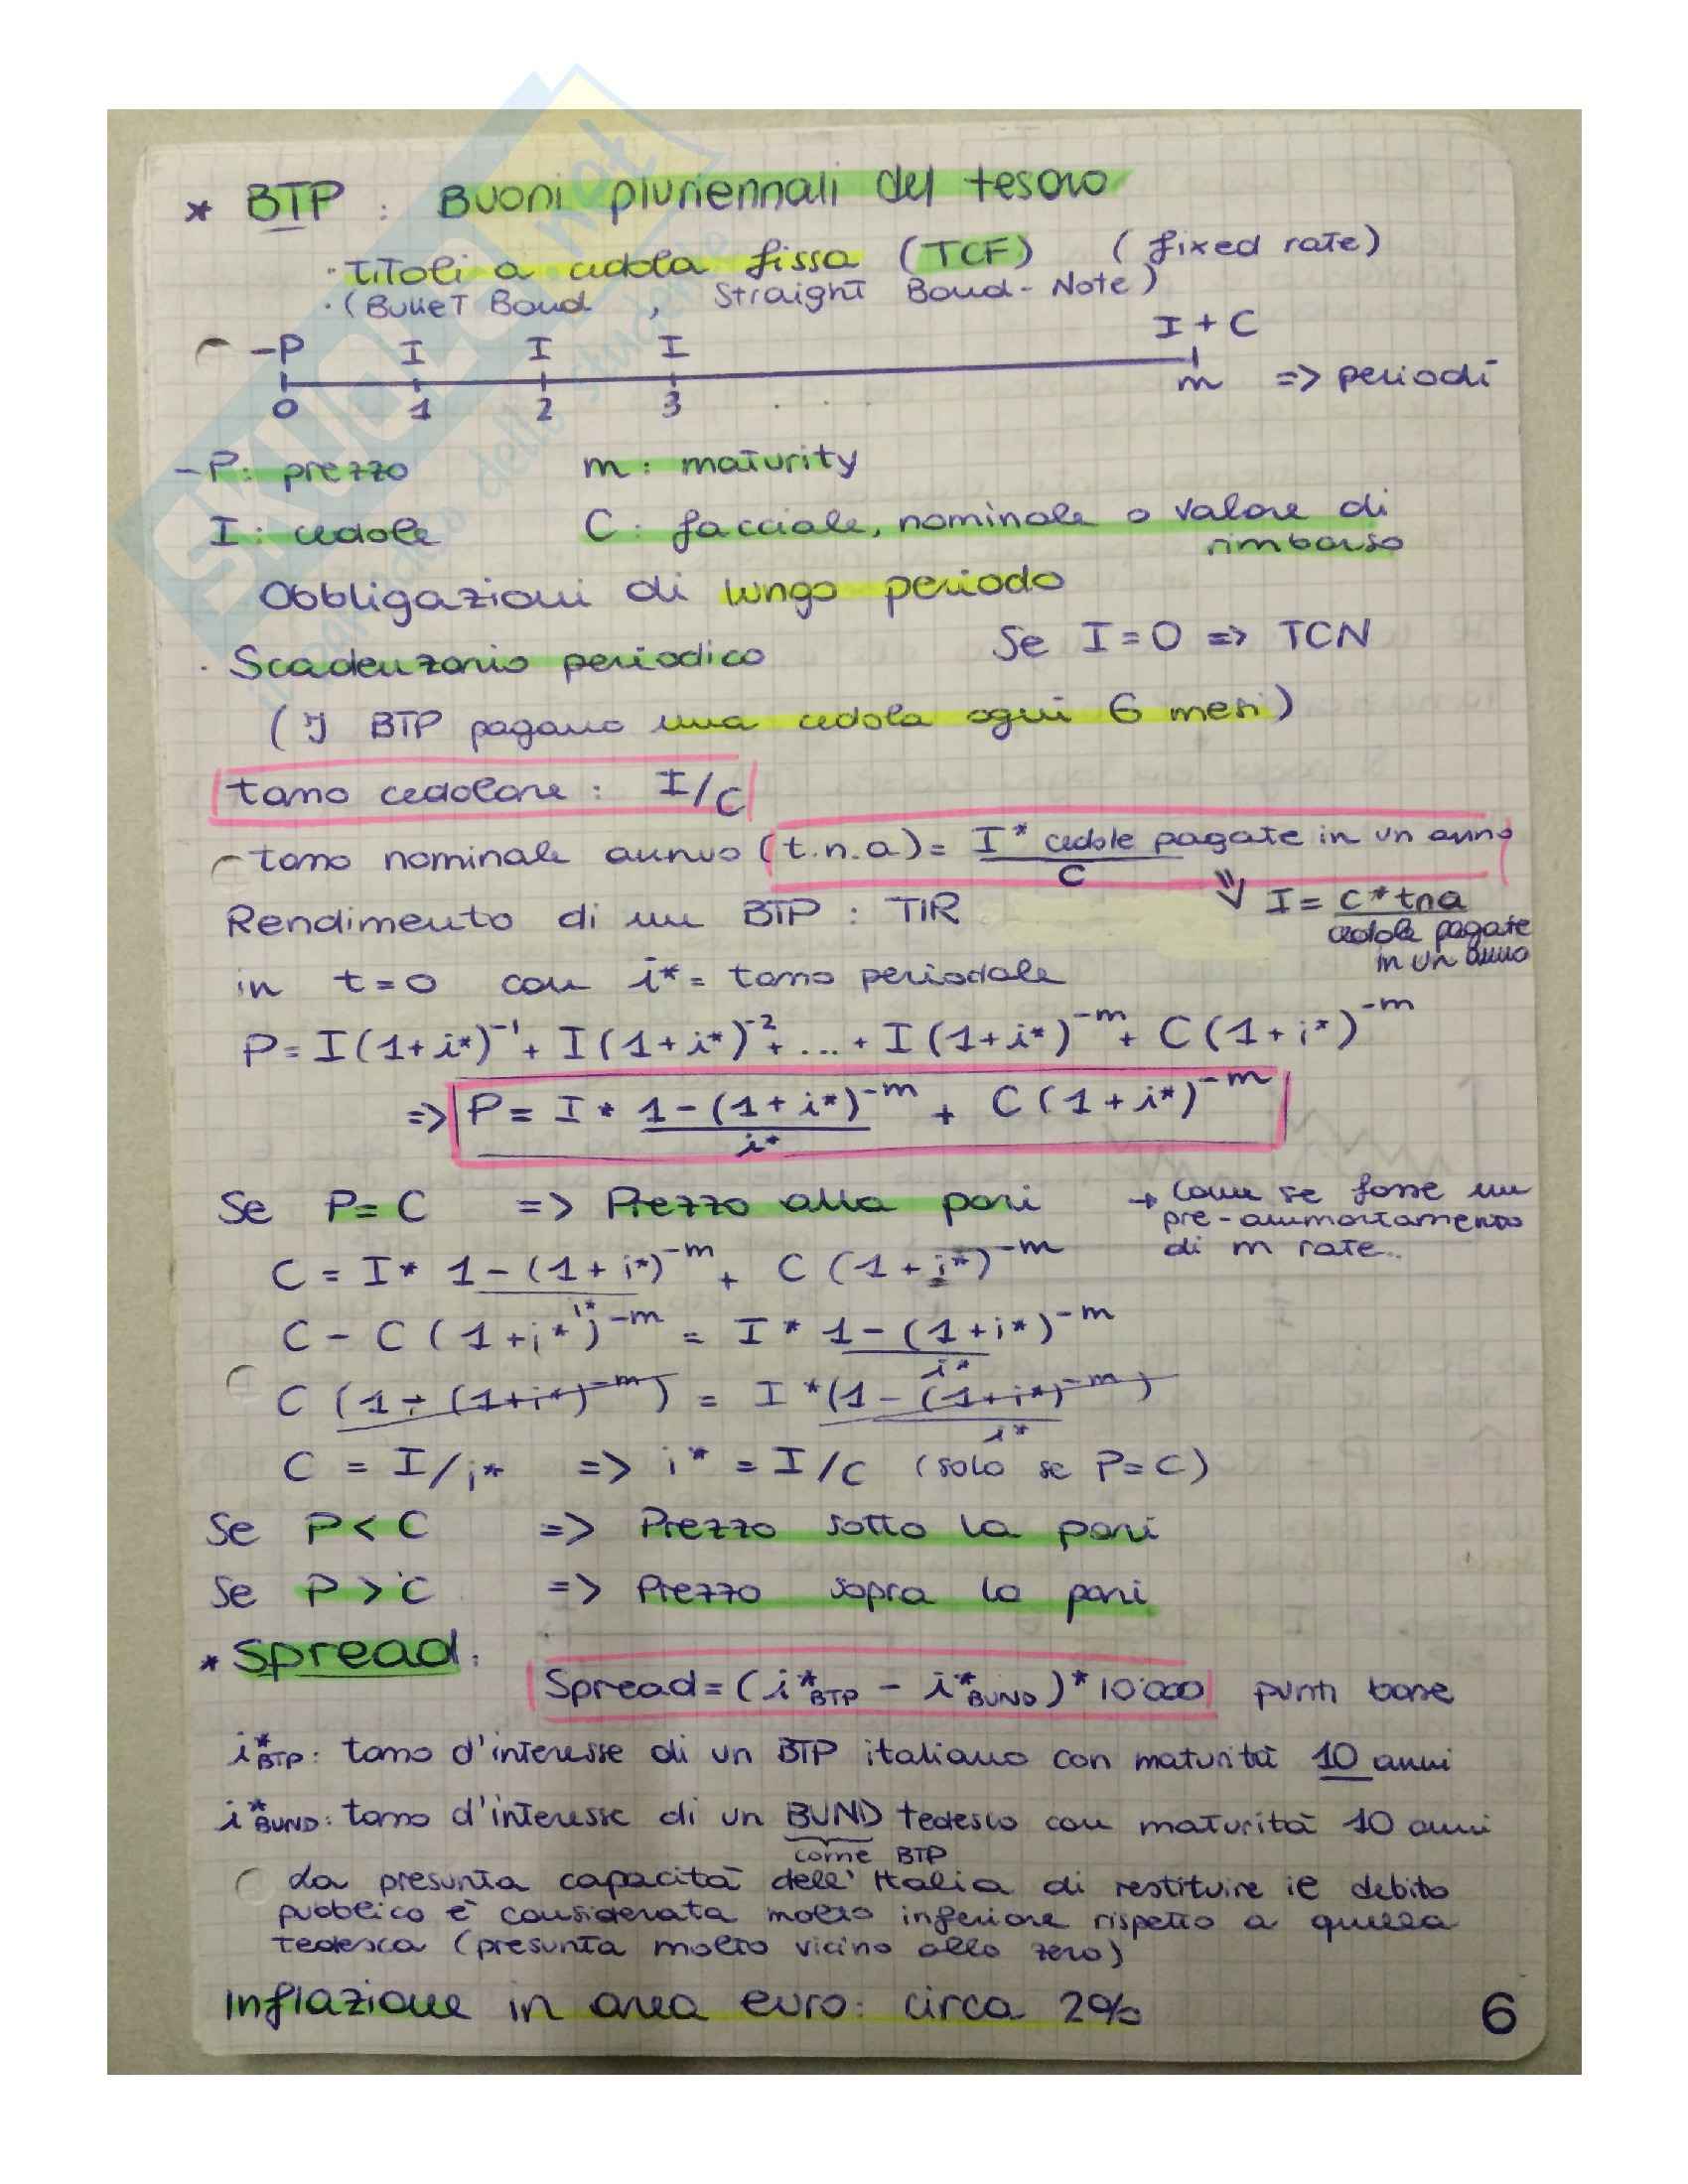 * BTP : Buoni pluriennali del tesoro
· Titoli a cedola fissa (TCF) (fixed rate)
· (Bullet Bond , Straight Bond - Note)
-P I I I I + C
0 1 2 3 m => periodi
-P: prezzo m: maturity
I: cedole C: facciale, nominale o valore di
rimborso
Obbligazioni di lungo periodo
· Scadenzario periodico Se I = 0 => TCN
(I BTP pagano una cedola ogni 6 mesi)
tasso cedolare: I/C
tasso nominale annuo (t.n.a) = I * cedole pagate in un anno
C
=> I = C * tna
cedole pagate
in un anno
Rendimento di un BTP : TIR
in t = 0 con i* = tasso periodale
P = I (1+i*)^-1 + I (1+i*)^-2 + ... + I (1+i*)^-m + C (1+i*)^-m
=> P = I * 1-(1+i*)^-m + C (1+i*)^-m
i*
Se P = C => Prezzo alla pari → Come se fosse un
pre-ammortamento
di m rate..
C = I * 1-(1+i*)^-m + C (1+i*)^-m
i*
C - C (1+i*)^-m = I * 1-(1+i*)^-m
i*
C (1-(1+i*)^-m) = I * (1-(1+i*)^-m)
i*
C = I/i* => i* = I/C (solo se P=C)
Se P < C => Prezzo sotto la pari
Se P > C => Prezzo sopra la pari
* Spread:
Spread = (i*BTP - i*BUND) * 10'000 punti base
i*BTP: tasso d'interesse di un BTP italiano con maturità 10 anni
i*BUND: tasso d'interesse di un BUND tedesco con maturità 10 anni
come BTP
La presunta capacità dell'Italia di restituire il debito
pubblico è considerata molto inferiore rispetto a quella
tedesca (presunta molto vicino allo zero)
Inflazione in area euro: circa 2%
6